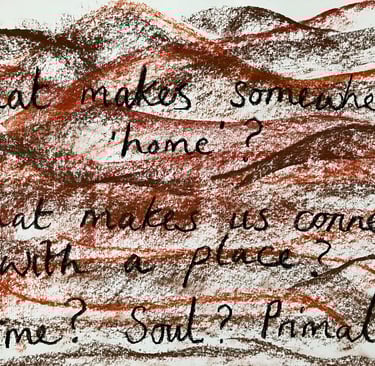 hat makes somewhe
'home'?
hat makes us conne
with a place?
me? Soul? Primal